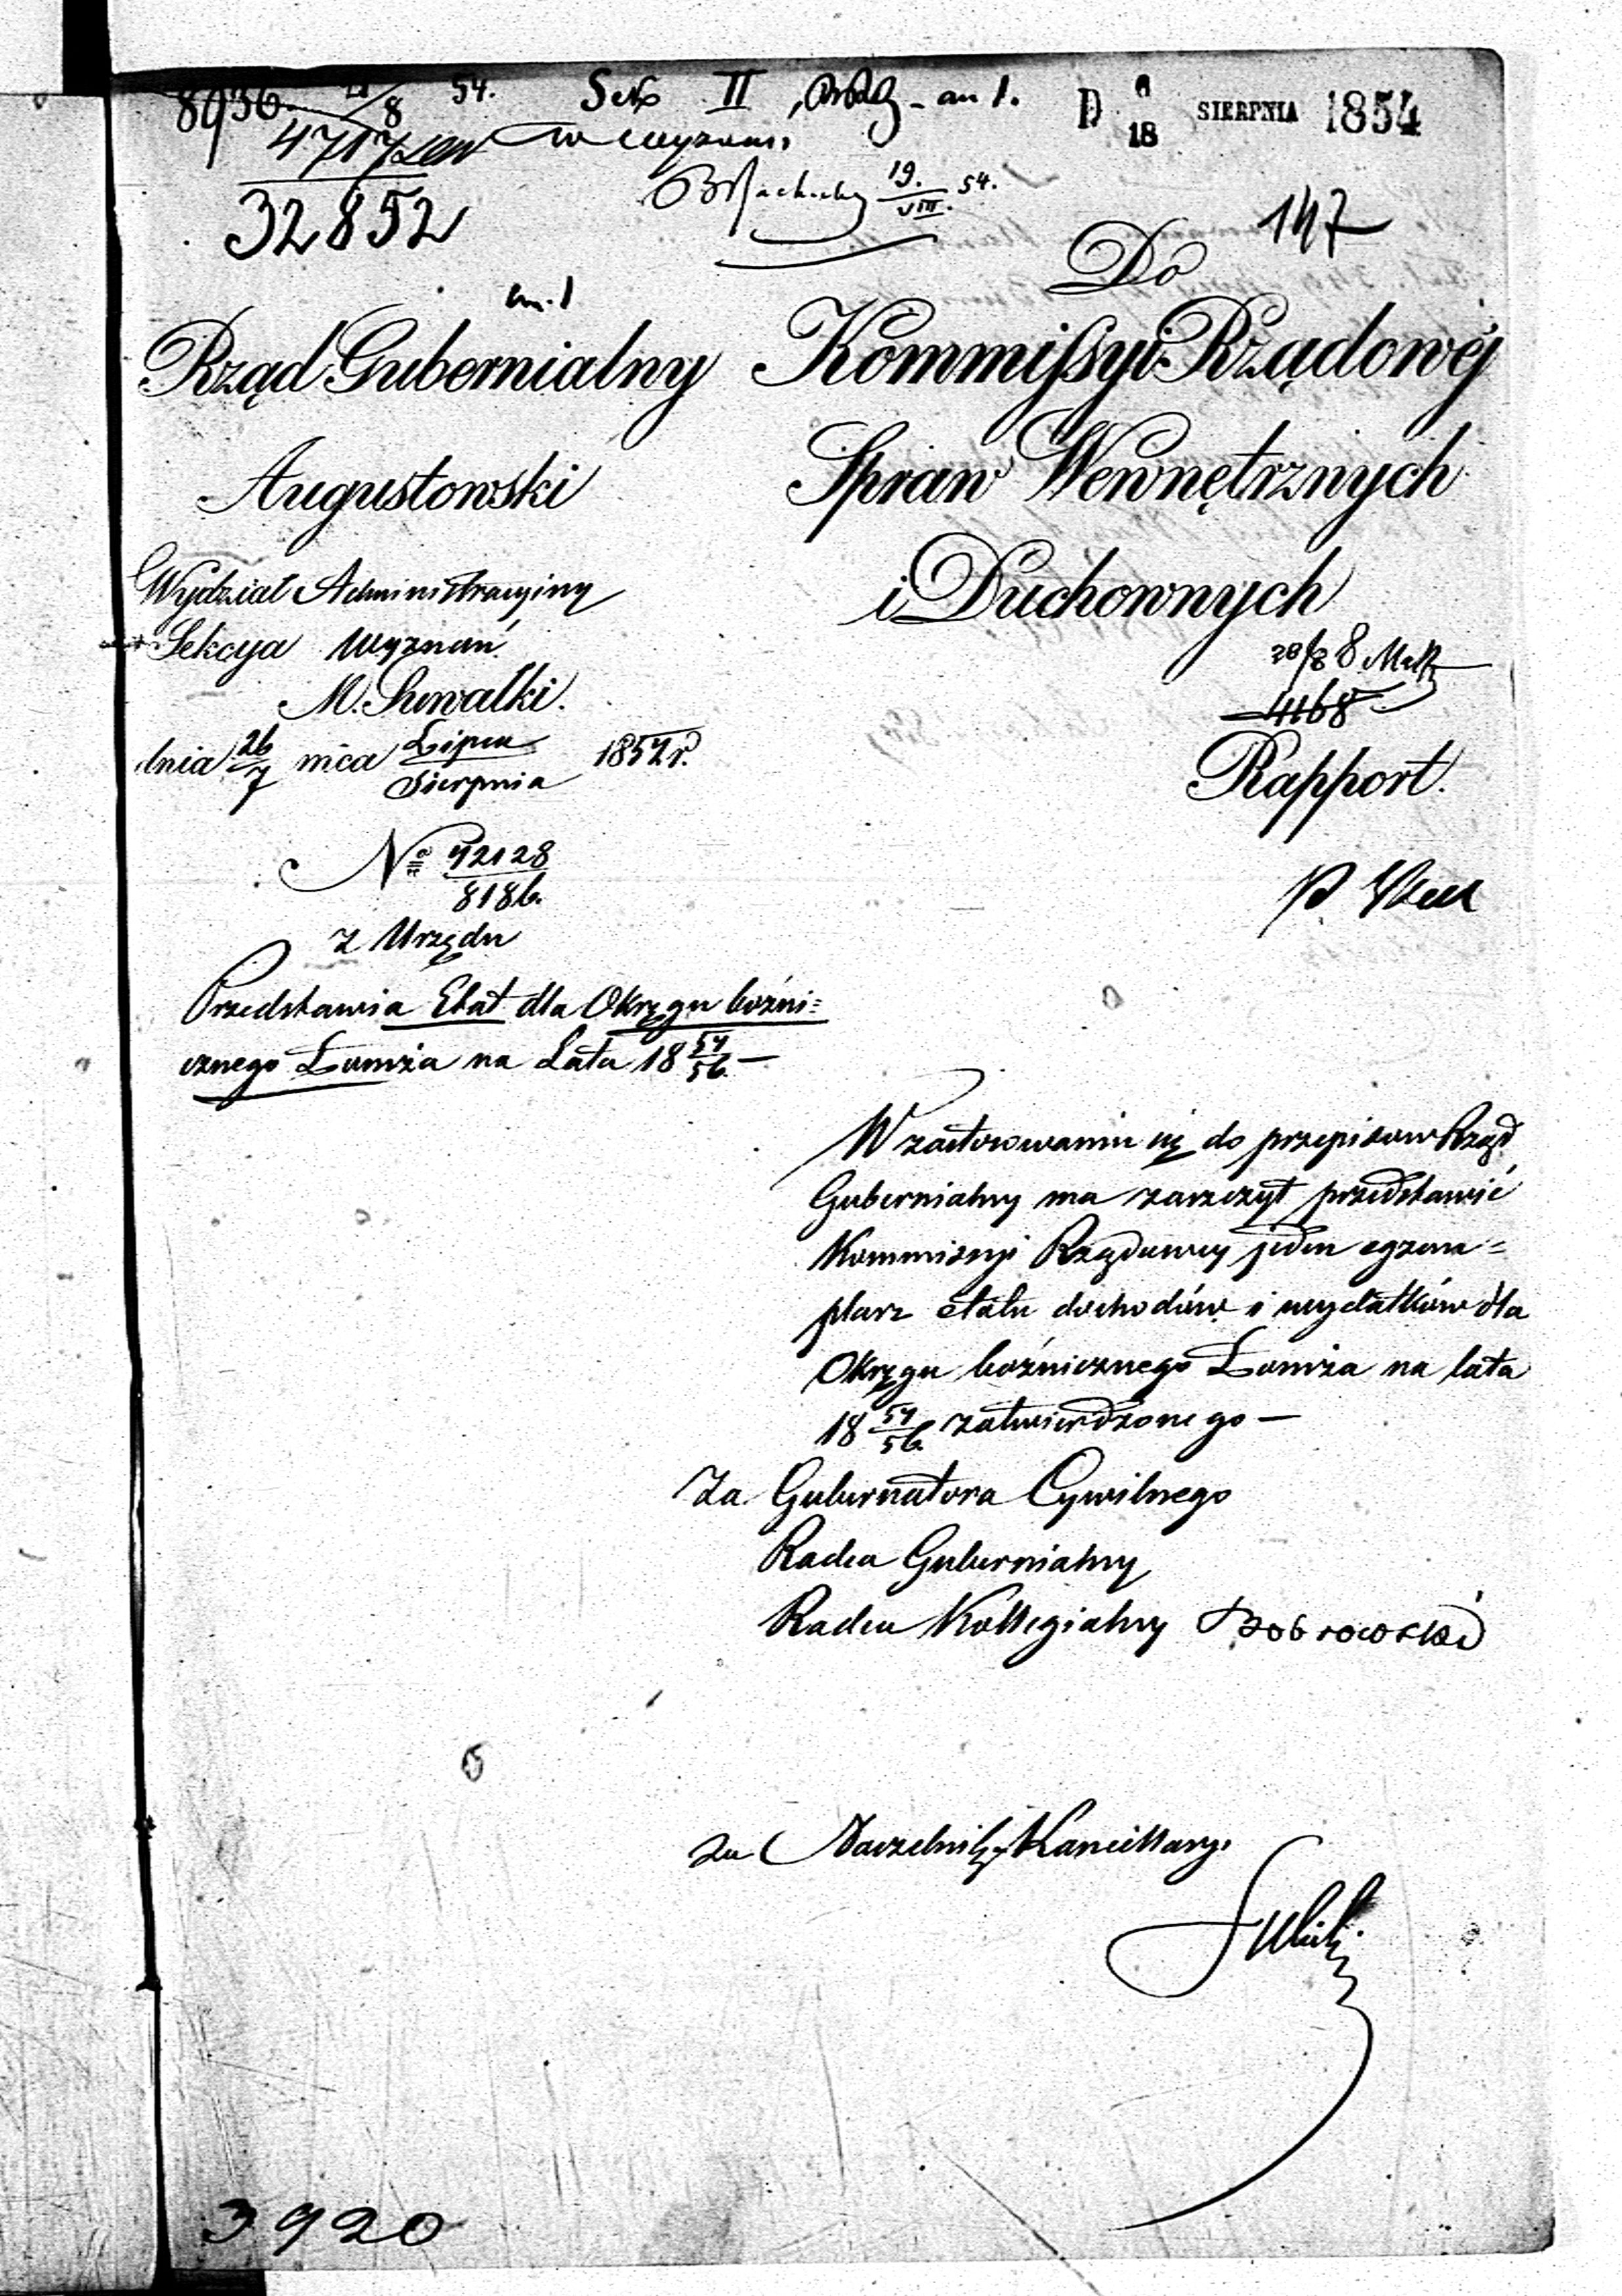 54. Sek II
D 6/18 SIERPNIA 1854
32852
19./VIII. 54.
147
an. 1
Rząd Gubernialny
Augustowski
Wydział Administracyjny
Sekcya Wyznań
M. Suwałki.
dnia 26/7 mca Lipca/Sierpnia 1854 r.
Nº 42128/8186.
Z Urzędu
Przedstawia Etat dla Okręgu boźni=
cznego Łomża na Lata 18 54/56 —
Do
Kommissyi Rządowéj
Spraw Wewnętrznych
i Duchownych
4168
Rapport.
W zastosowaniu się do przepisow Rząd
Gubernialny ma zaszczyt przedstawić
Kommissyi Rządowey jeden egzem=
plarz etatu dochodów i wydatków dla
Okręgu boźnicznego Łomża na lata
18 54/56 zatwierdzonego —
Za Gubernatora Cywilnego
Radca Gubernialny
Radca Kollegialny Bobrowski
za Naczelnika Kancellaryi
3920